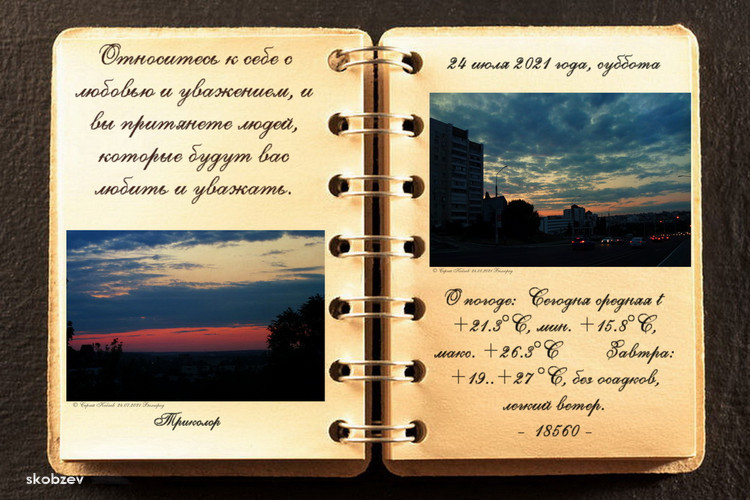 Относитесь к себе с
любовью и уважением, и
вы притянете людей,
которые будут вас
любить и уважать.
Триколор
24 июля 2021 года, суббота
О погоде: Сегодня средняя t
+21.3°С, мин. +15.8°С,
макс. +26.3°С Завтра:
+19..+27°С, без осадков,
легкий ветер.
- 18560 -
skobzev